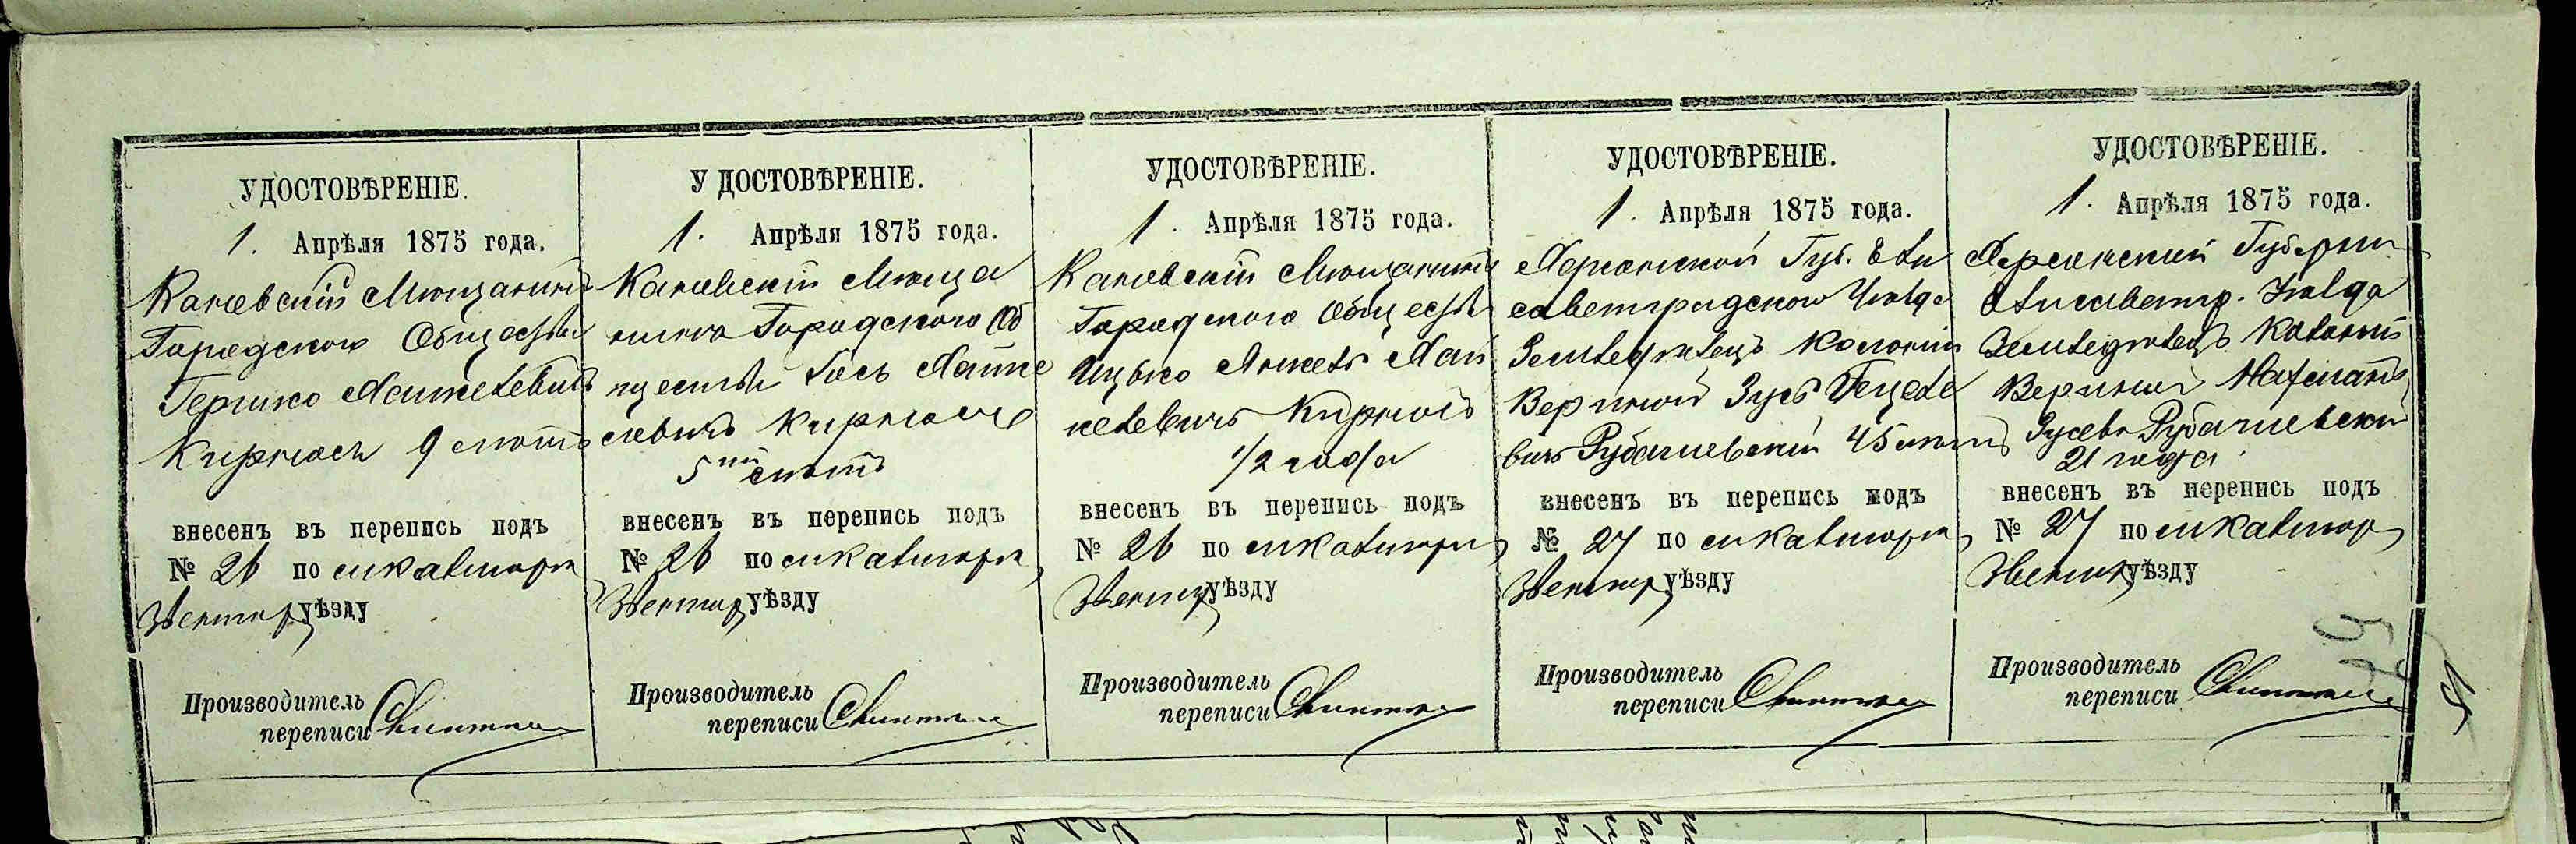 УДОСТОВѢРЕНІЕ.
1. Апрѣля 1875 года.
Каневскій Мющанинъ
Городскою Общества
Гершко Хаимелевичъ
Кирносъ 9 лютъ
внесенъ въ перепись подъ
№ 26 по м Катигоръ
Звениг уѣзду
Производитель
переписи
УДОСТОВѢРЕНІЕ.
1. Апрѣля 1875 года.
Каневскій Мюща
нинъ Городскою Об
щества Гось Хайме
левичъ Кирносъ
5 лютъ
внесенъ въ перепись подъ
№ 26 по м Катигоръ
Звениг уѣзду
Производитель
переписи
УДОСТОВѢРЕНІЕ.
1. Апрѣля 1875 года.
Каневскій Мющанинъ
Городского Общества
Ицько Хай
мелевичъ Кирносъ
1/2 года
внесенъ въ перепись подъ
№ 26 по м Катигоръ
Звениг уѣзду
Производитель
переписи
УДОСТОВѢРЕНІЕ.
1. Апрѣля 1875 года.
Херсонской Губ. Ели
саветградскою Уѣзда
Земледѣлецъ Колоніи
Зусь Гецеле
вичъ Рубашевскій 45 лютъ
внесенъ въ перепись подъ
№ 27 по м Катигоръ
Звениг уѣзду
Производитель
переписи
УДОСТОВѢРЕНІЕ.
1. Апрѣля 1875 года.
Херсонскій Губерніи
Елисаветгр. Уѣзда
Земледѣлецъ Колоніи
Нахманъ
Зусевъ Рубашевскій
21 года
внесенъ въ перепись подъ
№ 27 по м Катигор
Звениг уѣзду
Производитель
переписи